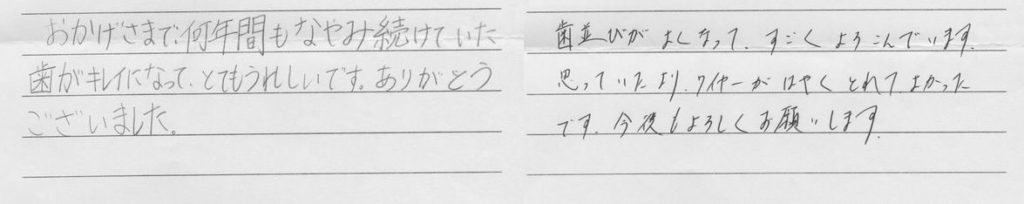 おかげさまで、何年間もなやみ続けていた
歯がキレイになって、とてもうれしいです。ありがとう
ございました。
歯並びがよくなって、すごくよろこんでいます。
思っていたより、ワイヤーがはやくとれて、よかった
です。今後もよろしくお願いします。